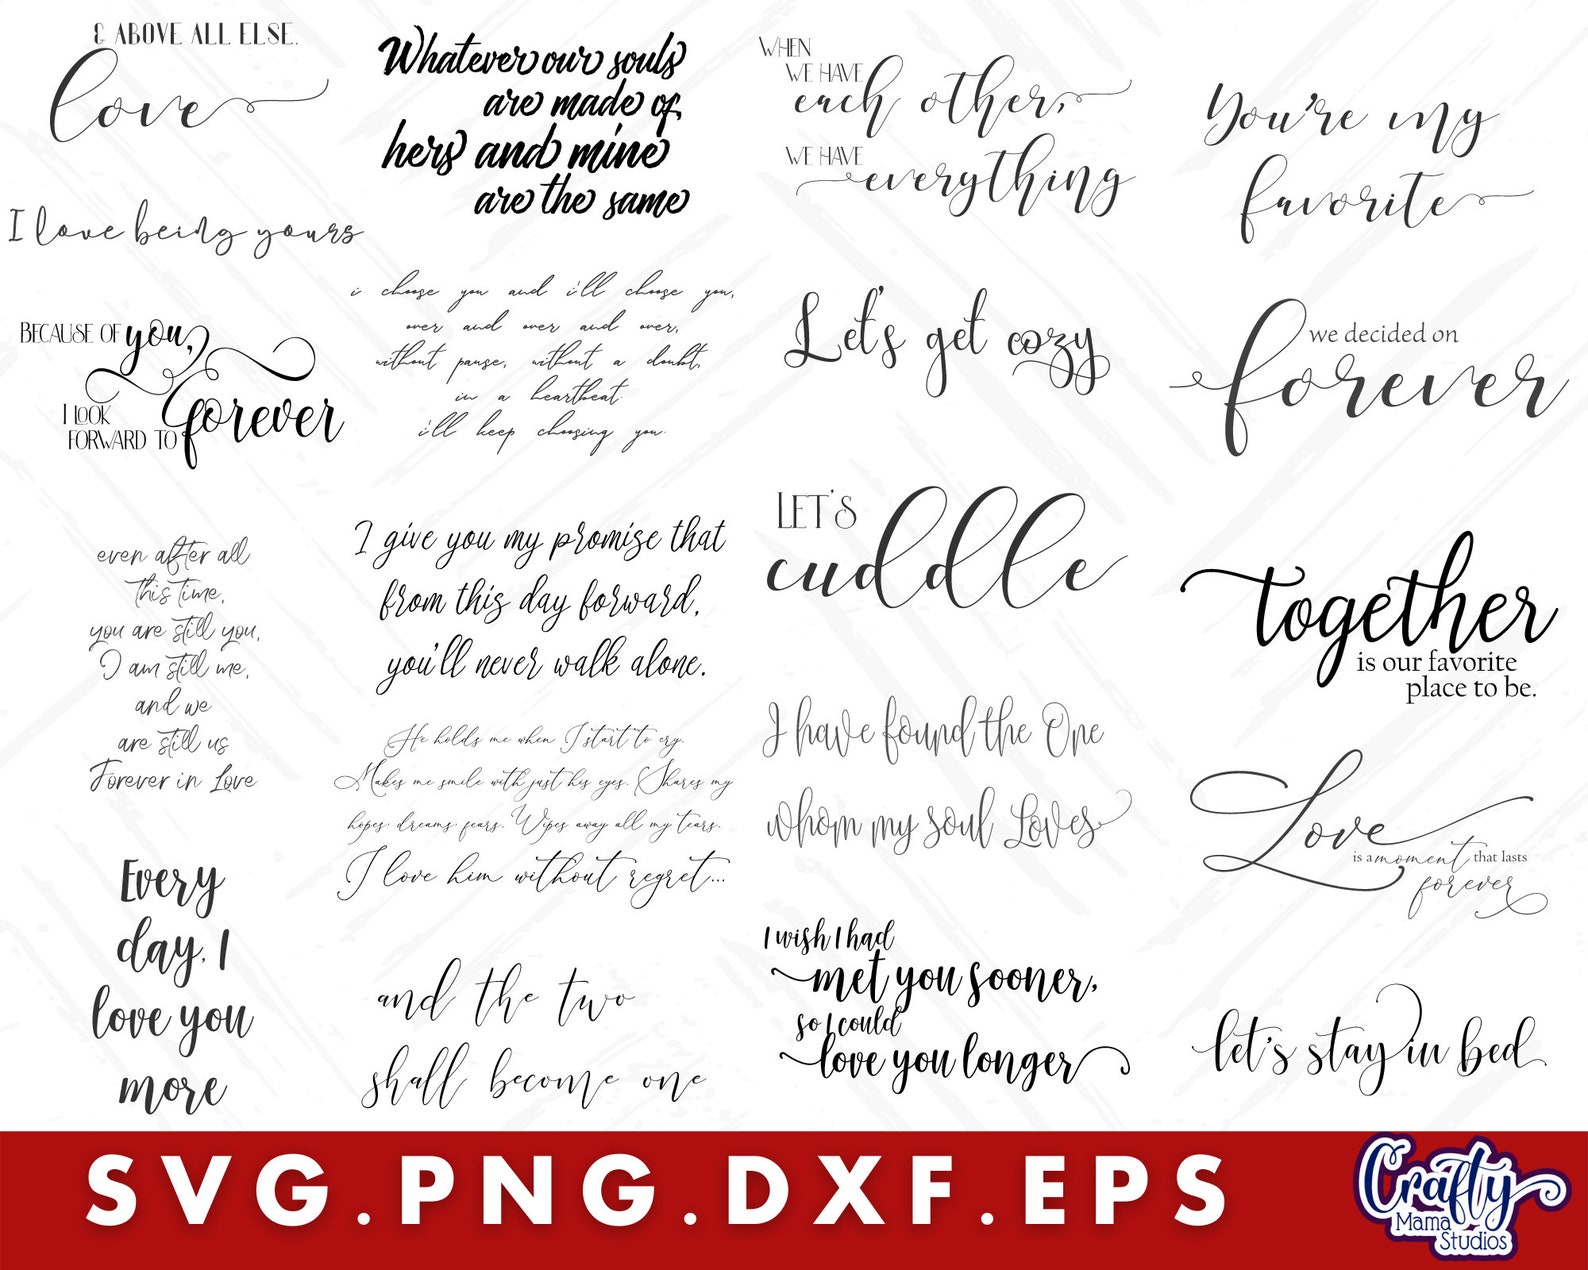 & ABOVE ALL ELSE.
love
I love being yours
BECAUSE OF you,
I LOOK
FORWARD TO forever
even after all
this time,
you are still you,
I am still me,
and we
are still us
Forever in Love
Every
day, I
love you
more
Whatever our souls
are made of,
hers and mine
are the same
i choose you and i'll choose you,
over and over and over,
without pause, without a doubt,
in a heartbeat
i'll keep choosing you.
I give you my promise that
from this day forward,
you'll never walk alone.
He holds me when I start to cry.
Makes me smile with just his eyes. Shares my
hopes, dreams, fears. Wipes away all my tears.
I love him without regret...
and the two
shall become one
WHEN
WE HAVE
each other,
WE HAVE
everything
Let's get cozy
LET'S
cuddle
I have found the One
whom my soul Loves
I wish I had
met you sooner,
so I could
love you longer
You're my
favorite
we decided on
forever
together
is our favorite
place to be.
Love
is a moment that lasts
forever
let's stay in bed
SVG.PNG.DXF.EPS
Crafty
Mama
Studios